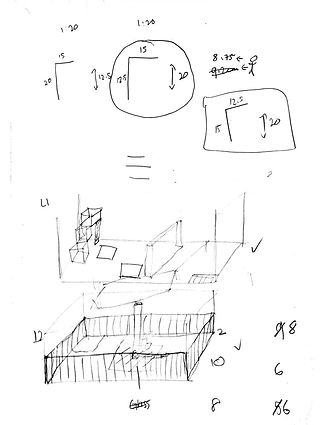 1:20 1:20
15 15
20 12.5 12.5 20
8.75 ←
12.5
15 20
L1
2
8
10
6
8 6